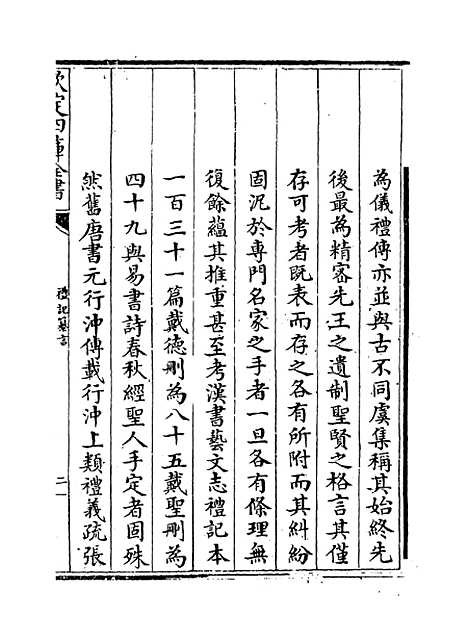 為儀禮傳亦並與古不同虞集稱其始終先
後最為精密先王之遺制聖賢之格言其僅
存可考者既表而存之各有所附而其糾紛
固泥於專門名家之手者一旦各有條理無
復餘蘊其推重甚至考漢書藝文志禮記本
一百三十一篇戴德刪為八十五戴聖刪為
四十九與易書詩春秋經聖人手定者固殊
然舊唐書元行沖傳載行沖上類禮義疏張
欽定四庫全書
禮記纂言
二